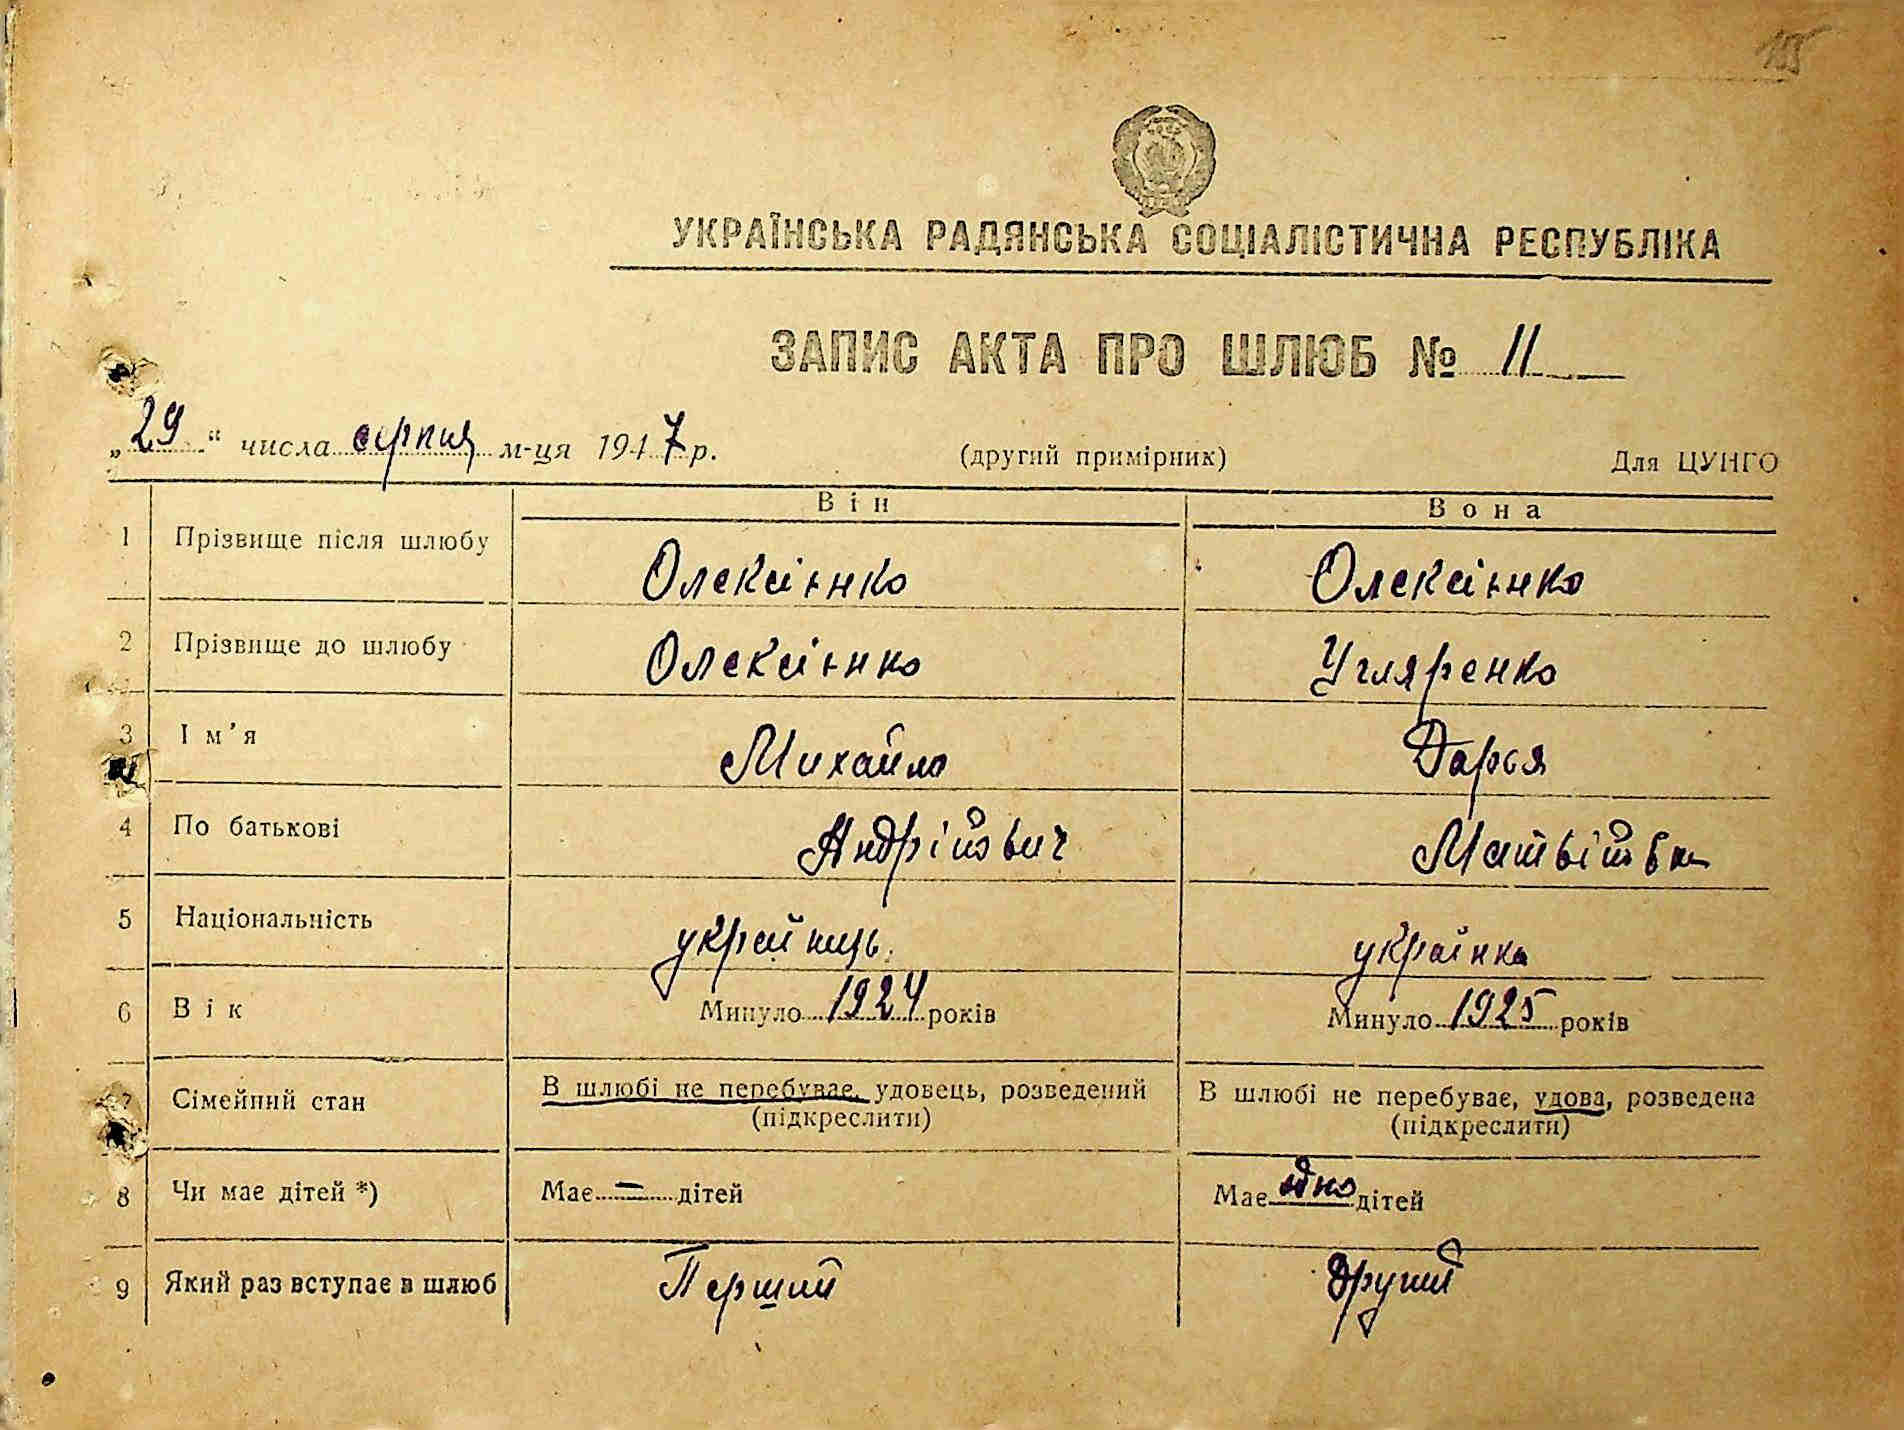 105
УКРАЇНСЬКА РАДЯНСЬКА СОЦІАЛІСТИЧНА РЕСПУБЛІКА
ЗАПИС АКТА ПРО ШЛЮБ № 11
„29“ числа серпня м-ця 1947 р. (другий примірник) Для ЦУНГО
Він Вона
1 Прізвище після шлюбу Олексієнко Олексієнко
2 Прізвище до шлюбу Олексієнко Угляренко
3 Ім’я Михайло Дарья
4 По батькові Андрійович Матвіївна
5 Національність українець українка
6 Вік Минуло 1924 років Минуло 1925 років
7 Сімейний стан В шлюбі не перебуває, удовець, розведений В шлюбі не перебуває, удова, розведена
(підкреслити) (підкреслити)
8 Чи має дітей *) Має – дітей Має одно дітей
9 Який раз вступає в шлюб Перший Другий